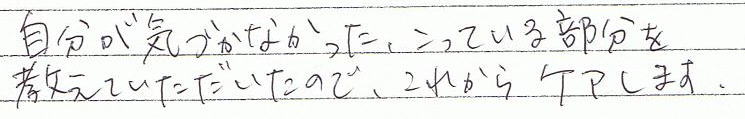 自分が気づかなかった、こっている部分を
教えていただいたので、これから ケアします.